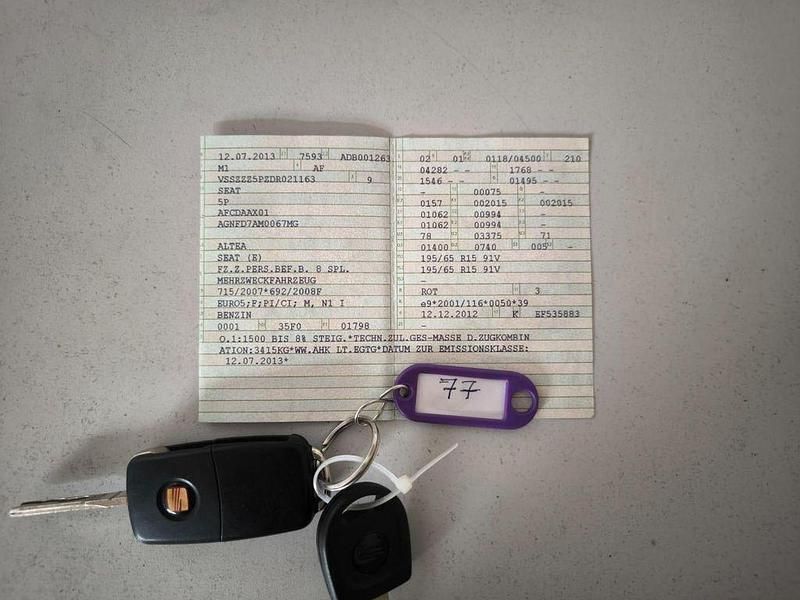 12.07.2013 7593 ADB001263
M1 AF
VSSZZZ5PZDR021163 9
SEAT
5P
AFCDAAX01
AGNFD7AM0067MG
ALTEA
SEAT (E)
FZ.Z.PERS.BEF.B. 8 SPL.
MEHRZWECKFAHRZEUG
715/2007*692/2008F
EURO5;F;PI/CI; M, N1 I
BENZIN
0001 35F0 01798
02 01 0118/04500 210
04282 - - 1768 - -
1546 - - 01495 - -
- 00075 -
0157 002015 002015
01062 00994 -
01062 00994 -
78 03375 71
01400 0740 005 -
195/65 R15 91V
195/65 R15 91V
-
ROT 3
e9*2001/116*0050*39
12.12.2012 K EF535883
-
O.1:1500 BIS 8% STEIG.*TECHN.ZUL.GES-MASSE D.ZUGKOMBIN
ATION:3415KG*WW.AHK LT.EGTG*DATUM ZUR EMISSIONSKLASSE:
12.07.2013*
77